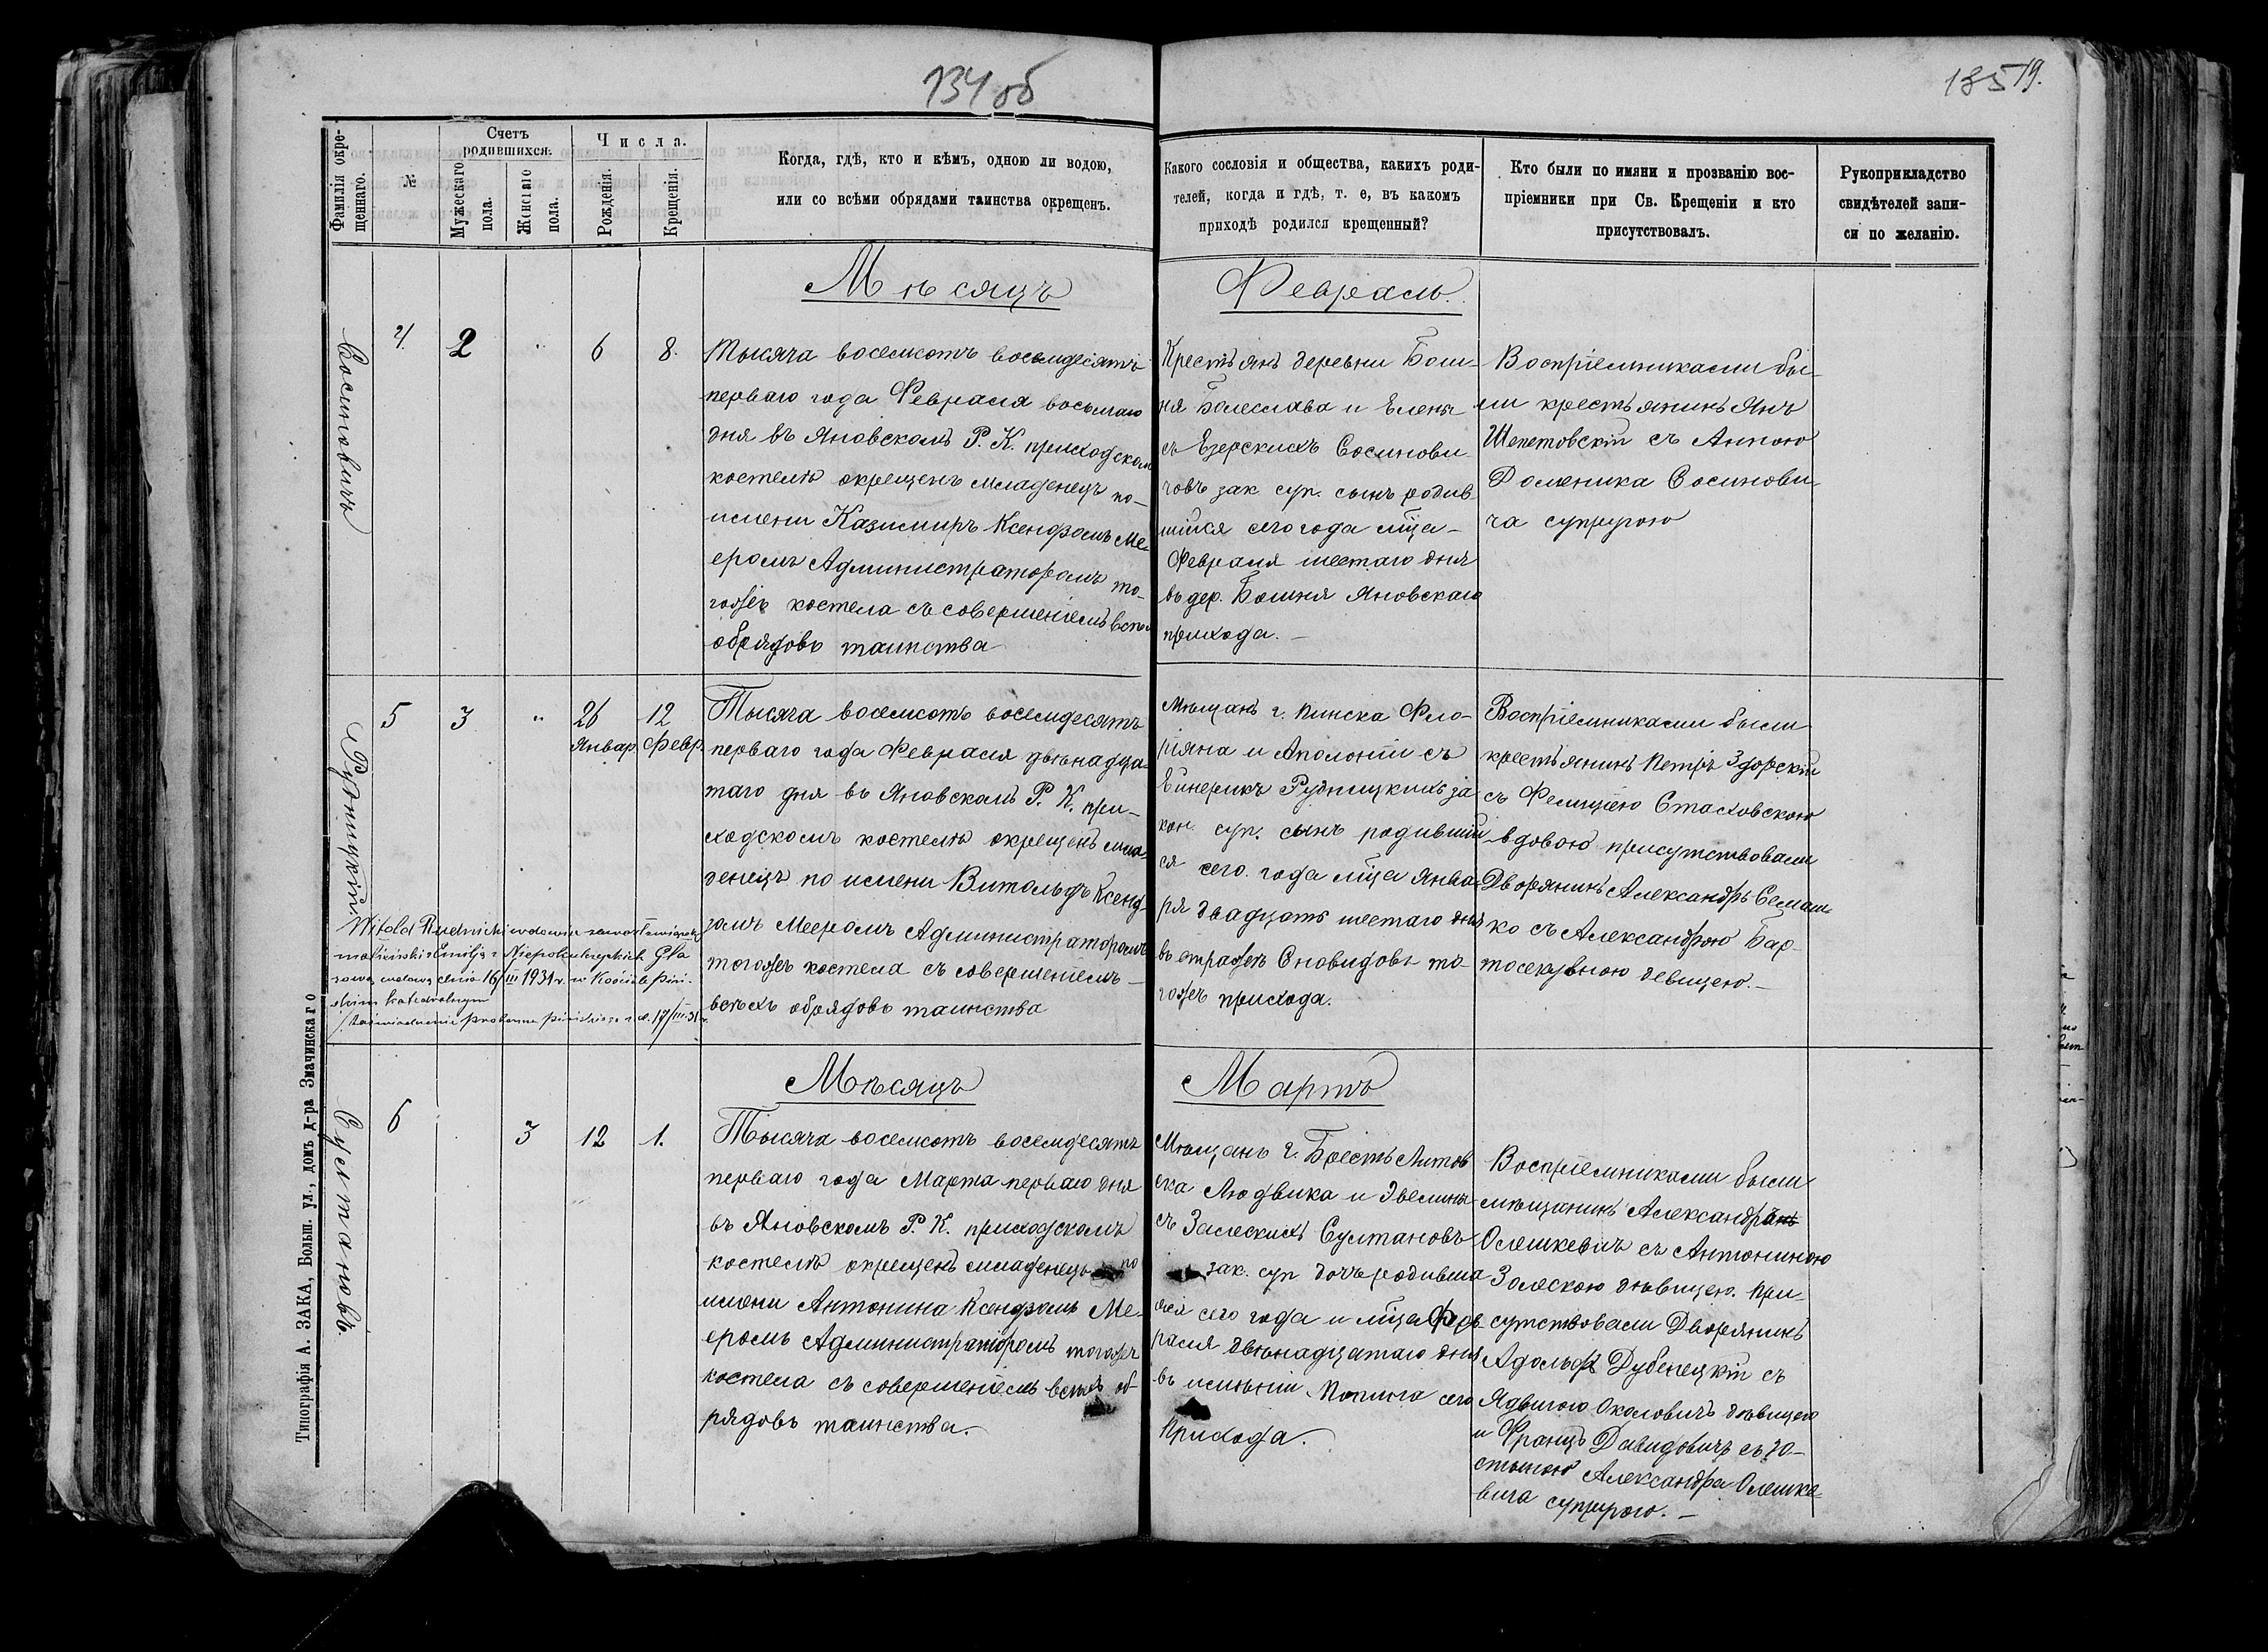 134 об
135 19.
Фамилія окре-
щеннаго.
№
Счетъ
родившихся.
Мужескаго
пола.
Женскаго
пола.
Числа.
Рожденія.
Крещенія.
Когда, гдѣ, кто и кѣмъ, одною ли водою,
или со всѣми обрядами таинства окрещенъ.
Какого сословія и общества, какихъ роди-
телей, когда и гдѣ, т. е, въ какомъ
приходѣ родился крещенный?
Кто были по имяни и прозванію вос-
пріемники при Св. Крещеніи и кто
присутствовалъ.
Рукоприкладство
свидѣтелей запи-
си по желанію.
Мѣсяцъ
Февраль.
4. 2 " 6 8.
Тысяча восемсотъ восемдесятъ
перваго года Февраля восьмаго
дня въ Яновскомъ Р. К. приходском
костелѣ окрещенъ младенецъ по-
имени Казимиръ Ксендзомъ Ме-
еромъ Администраторомъ то-
гожъ костела съ совершеніемъ всѣхъ
обрядовъ таинства
Крестьянъ деревни
Болеслава и Елены
съ Езерскихъ Сосинови-
човъ зак. суп. сынъ родив
шійся сего года мца-
Февраля шестаго дня
въ дер. Яновскаго
прихода. -
Воспріемниками бы-
ли крестьянинъ Янъ
Шепетовскій съ Анною
Доменика Сосинови-
ча супругою
Рудницкій.
5 3 " 26 12
Январ. Февр.
Тысяча восемсотъ восемдесятъ
перваго года Февраля двѣнадца-
таго дня въ Яновскомъ Р. К. при-
ходскомъ костелѣ окрещенъ мла-
денецъ по имени Витольдъ Ксенд-
зомъ Меером Администраторомъ
тогожъ костела съ совершеніемъ
всѣхъ обрядовъ таинства
Мѣщанъ г. Пинска Фло-
ріяна и Аполоніи съ
Рудницкихъ за
кон. суп. сынъ родившій
ся сего года мца Янва-
ря двадцать шестаго дня
въ стражѣ Сновидовъ то-
гожъ прихода.
Воспріемниками были
крестьянинъ Петръ Здорскій
съ Фелиціею Стаховскою
вдовою присутствовали
Дворянинъ Александръ Семаш-
ко съ Александрою Бар-
тосевною девицею. -
Witold Rudnicki wdowiec zawarł związek
małżeński z Emilją z Niepokulczyckich Gła
zową wdową dnia 16/III 1931 r. w Kościele piń-
skim katedralnym
/ Zaświadczenie proboszcza pińskiego z d. 17/III-31 r.
Мѣсяцъ
Мартъ
Султановъ.
6 3 12 1.
Тысяча восемсотъ восемдесятъ
перваго года Марта перваго дня
въ Яновскомъ Р. К. приходскомъ
костелѣ окрещенъ младенецъ по
имени Антонина Ксендзомъ Ме-
еромъ Администраторомъ тогожъ
костела съ совершеніемъ всѣхъ об-
рядовъ таинства. -
Мѣщанъ г. Брестъ Литов
ска Людвика и Эвелины
съ Залескихъ Султановъ
зак. суп дочь родивша
яся сего года и мца Фев
раля двѣнадцатаго дня
въ имѣніи сего
Прихода.
Воспріемниками были
мѣщанинъ Александръ
Олешкевичъ съ Антониною
Залескою дѣвицею. При-
сутствовали Дворянинъ
Адольфъ Дубенецкій съ
Ядвигою Околовичъ дѣвицею
и Францъ Давидовичъ съ Ю-
стыною Александра Олешке-
вича супругою. -
Типографія А. ЗАКА, Больш. ул., домъ д-ра Значинскаго